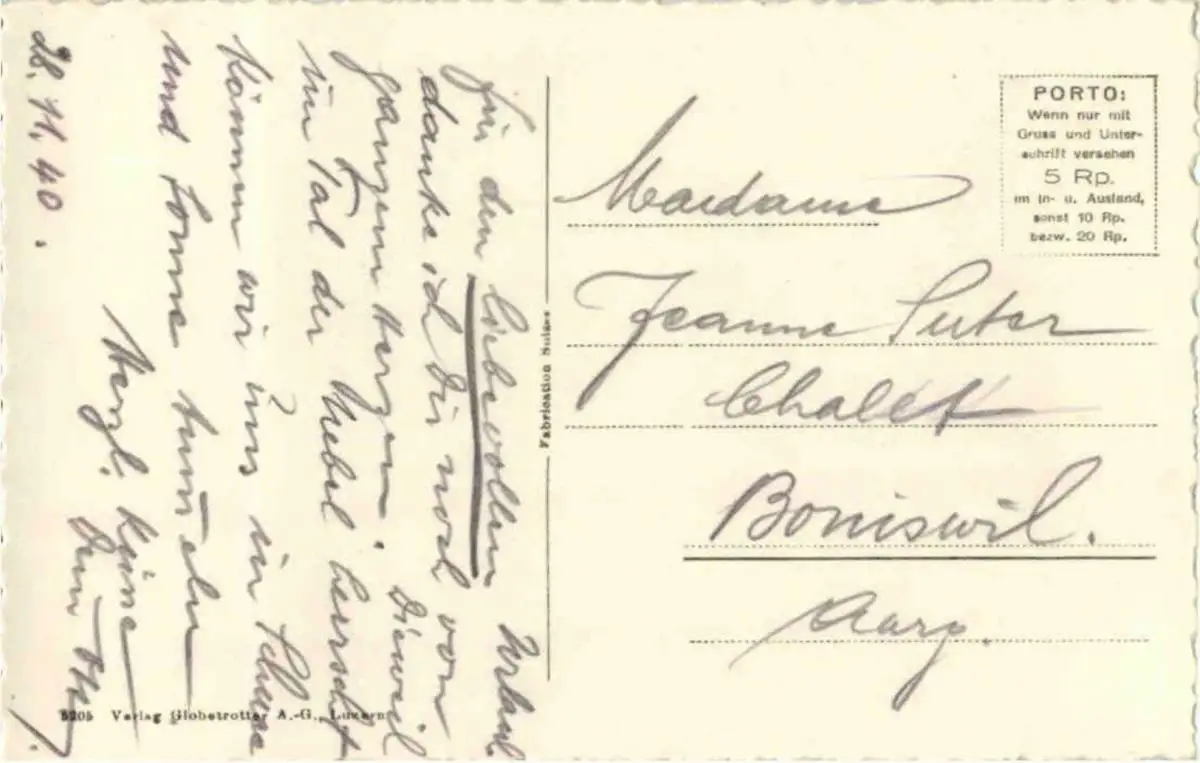 für den liebevollen Urlaub
danke ich Dir noch von
ganzem Herzen. Dieweil
im Tal der Nebel herrscht
können wir uns in Schnee
und Sonne tummeln
Herzl.
Dein
28.11.40.
5205 Verlag Globetrotter A.-G., Luzern
Fabrication Suisse
PORTO:
Wenn nur mit
Gruss und Unter-
schrift versehen
5 Rp.
im In- u. Ausland,
sonst 10 Rp.
bezw. 20 Rp.
Madame
Jeanne Suter
Chalet
Boniswil.
Aarg.